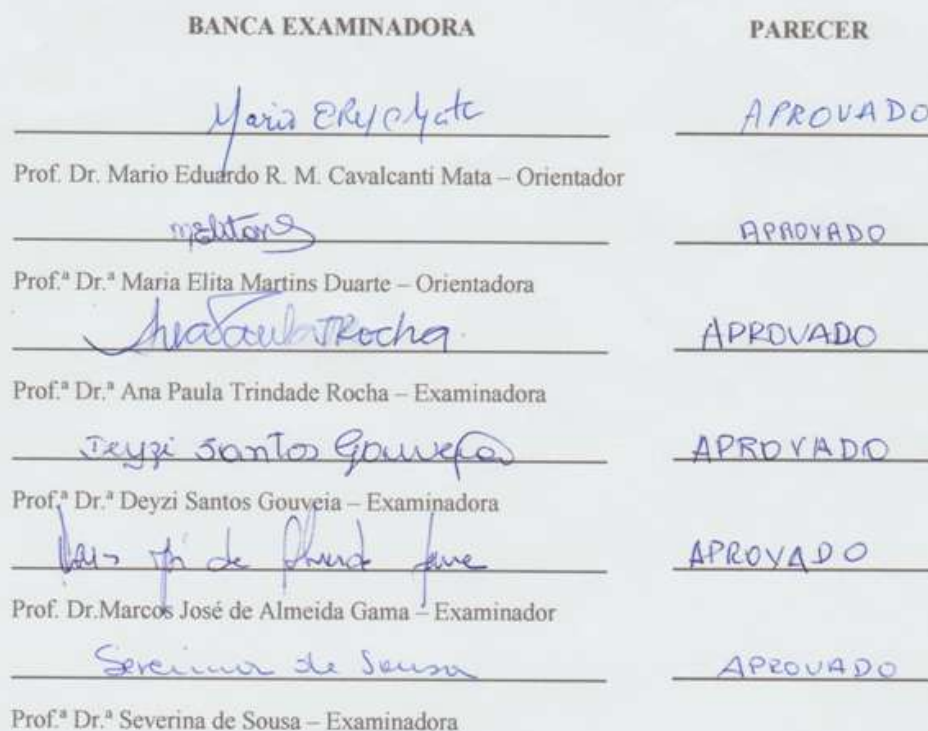 BANCA EXAMINADORA PARECER
APROVADO
Prof. Dr. Mario Eduardo R. M. Cavalcanti Mata – Orientador
APROVADO
Prof.ª Dr.ª Maria Elita Martins Duarte – Orientadora
Ana Paula TRocha APROVADO
Prof.ª Dr.ª Ana Paula Trindade Rocha – Examinadora
Deyzi Santos Gouveia APROVADO
Prof.ª Dr.ª Deyzi Santos Gouveia – Examinadora
APROVADO
Prof. Dr.Marcos José de Almeida Gama – Examinador
Severina de Sousa APROVADO
Prof.ª Dr.ª Severina de Sousa – Examinadora